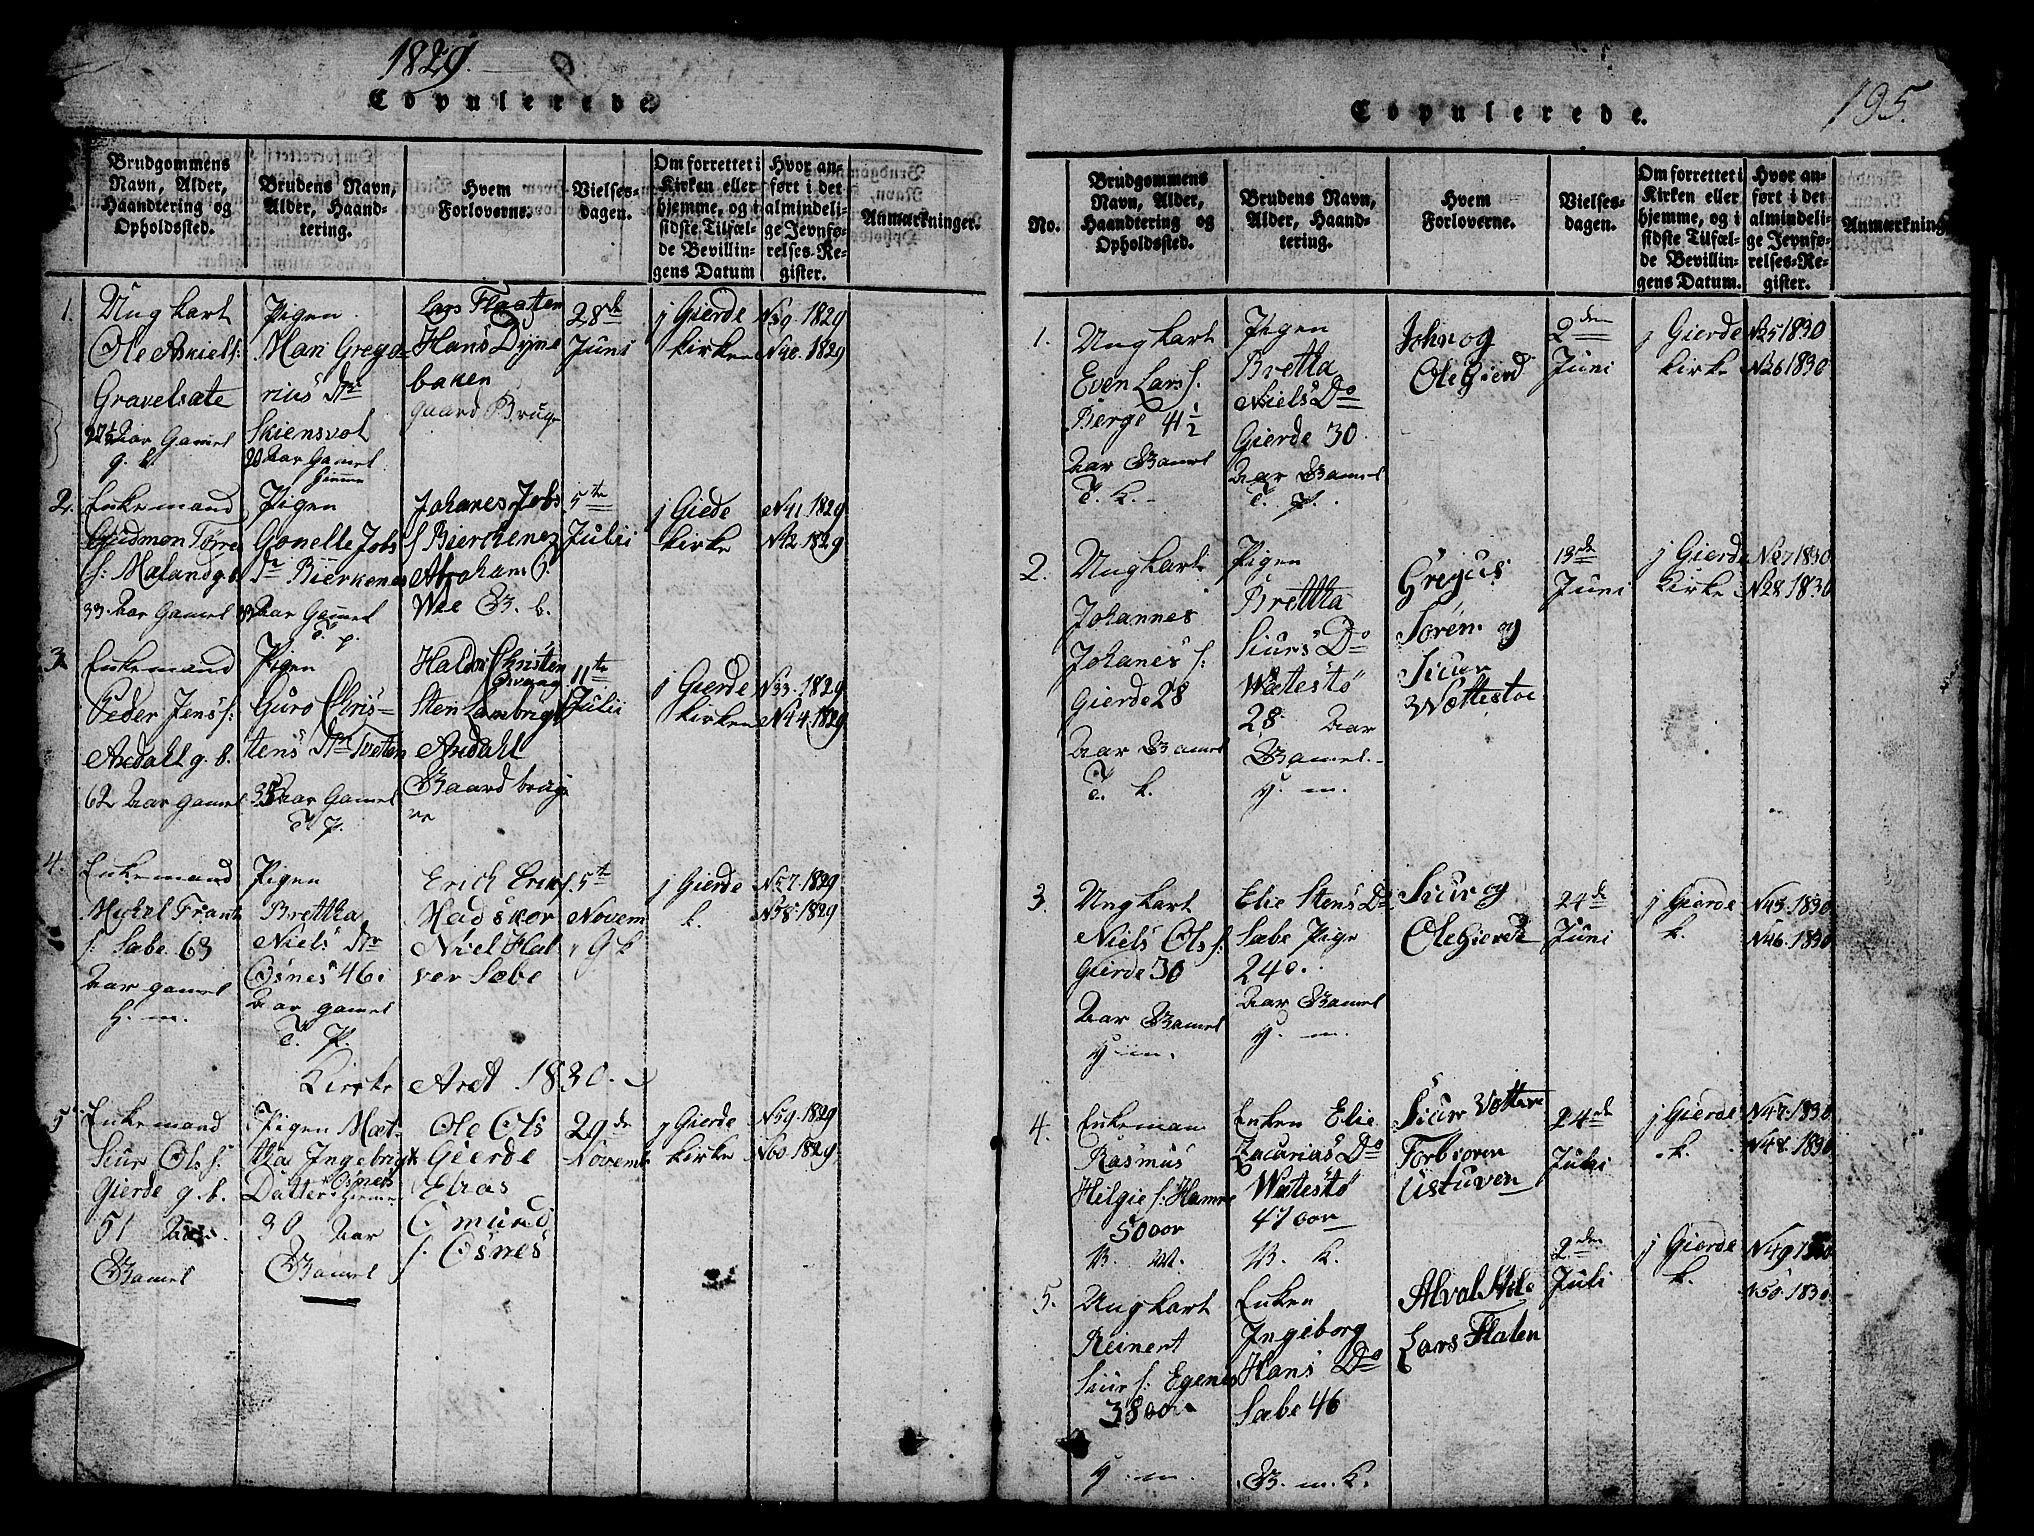 1829.
Copulerede.
Brudgommens Navn, Alder, Haandtering og Opholdssted.
Brudens Navn, Alder, Haandtering.
Hvem Forloverne.
Vielses-dagen.
Om forrettet i Kirken eller hjemme, og i sidste Tilfælde Bevillingens Datum
Hvor anført i det almindelige Jevnførelses-Register.
Anmærkninger.
1.
Ungkart
Ole Asniels:
Gravelsæte
Aar Gamel
Pigen
Mari Grega
rius Dtr
Skiensvol
20 Aar Gamel
Lars Flaatten
Hans Dyne
baken
gaard Bruge
28de
Juni
j Gierde
kirken
N39. 1829
N40. 1829
2.
Enkemand
Gudmon Tørres
s: Mæland g.b.
33 Aar Gamel
Pigen
Gonelle Jobs
Dr Bierkenes
Aar Gamel
T. p.
Johanes Jobs
s Bierchenez
Abraham
Wee G. b.
5te
Julii
j Giede
kirke
N41. 1829
N42. 1829
3.
Enkemand
Peder Jens s:
Ardahl g. b.
62 Aar gamel
Pigen
Guro Chris=
tens Dtr Tveten
Aar Gamel
T. p.
Haldor Christen
Sten Lambrigt
Ardahl
Gaard brug
11te
Julii
j Gierde
kirken
N33. 1829
N44. 1829
4.
Enkemand
Mickel Frants
s. Sæbe 63
Aar gamel
H. m.
Pigen
Brettha
Niels Dtr
Osnes 46.
Aar gamel
T. P.
Erich Eriks.
Madskor
Niel Hal
ver Sæbe
5te
Novem
j Gierde
k.
N57. 1829
N58. 1829
Kirke Aret 1830.
5.
Enkemand
Siur Ols s:
Gierde g. b.
51 Aar
Gamel
Pigen Mæt=
tha Ingebrigt
Datter Osnes
30 Aar
Gamel
Ole Ols
Gierde
Elias
Omund
s. Osnes
29de
Novemb
j Gierde
kirke
N59. 1829
N60. 1829
Copulerede.
195.
No.
Brudgommens Navn, Alder, Haandtering og Opholdssted.
Brudens Navn, Alder, Haandtering.
Hvem Forloverne.
Vielses-dagen.
Om forrettet i Kirken eller hjemme, og i sidste Tilfælde Bevillingens Datum.
Hvor anført i det almindelige Jevnførelses-Register.
Anmærkning
1.
Ungkart
Even Lars s.
Berge 41 1/2
Aar Gamel
T. K.
Pigen
Bretta
Niels Do
Gierde 30
Aar Gamel
T. p.
John og
Ole Gierd
2den
Juni
j Gierde
kirke
N25 1830
N26 1830
2.
Ungkart
Johannes
Johanes s:
Gierde 28
Aar Gamel
T. k.
Pigen
Brettha
Siurs Do
Wætestø
28 Aar
Gamel.
y. m.
Gregus
Søren og
Siur
Wættestoe
13de
Juni
j Gierde
Kirke
N27 1830
N28. 1830
3.
Ungkart
Niels Ols s:
Gierde 30
Aar Gamel
y m.
Elie Stens Do
Sæbe Pige
24
Aar Gamel
y. m.
Siur og
Ole Gierde
24de
Juni
j Gierde
k.
N45. 1830
N46. 1830
4.
Enkeman
Rasmus
Helgie s: Hamre
50 aar
Enken Elie
Zacarias Do
Wætestø
47 aar
Siur Vættere
Torbioren
Ustuven
24de
j Gierde
k.
N47. 1830
N48. 1830
5.
Ungkart
Reinert
Siur s: Egenes
38 aar
y. m.
Enken
Ingeborg
Hans Do
Sæbe 46
G. m. K.
Alval Hele
Lars Flaten
2den
Juli
j Gierde
k.
N49. 1830
N50. 1830